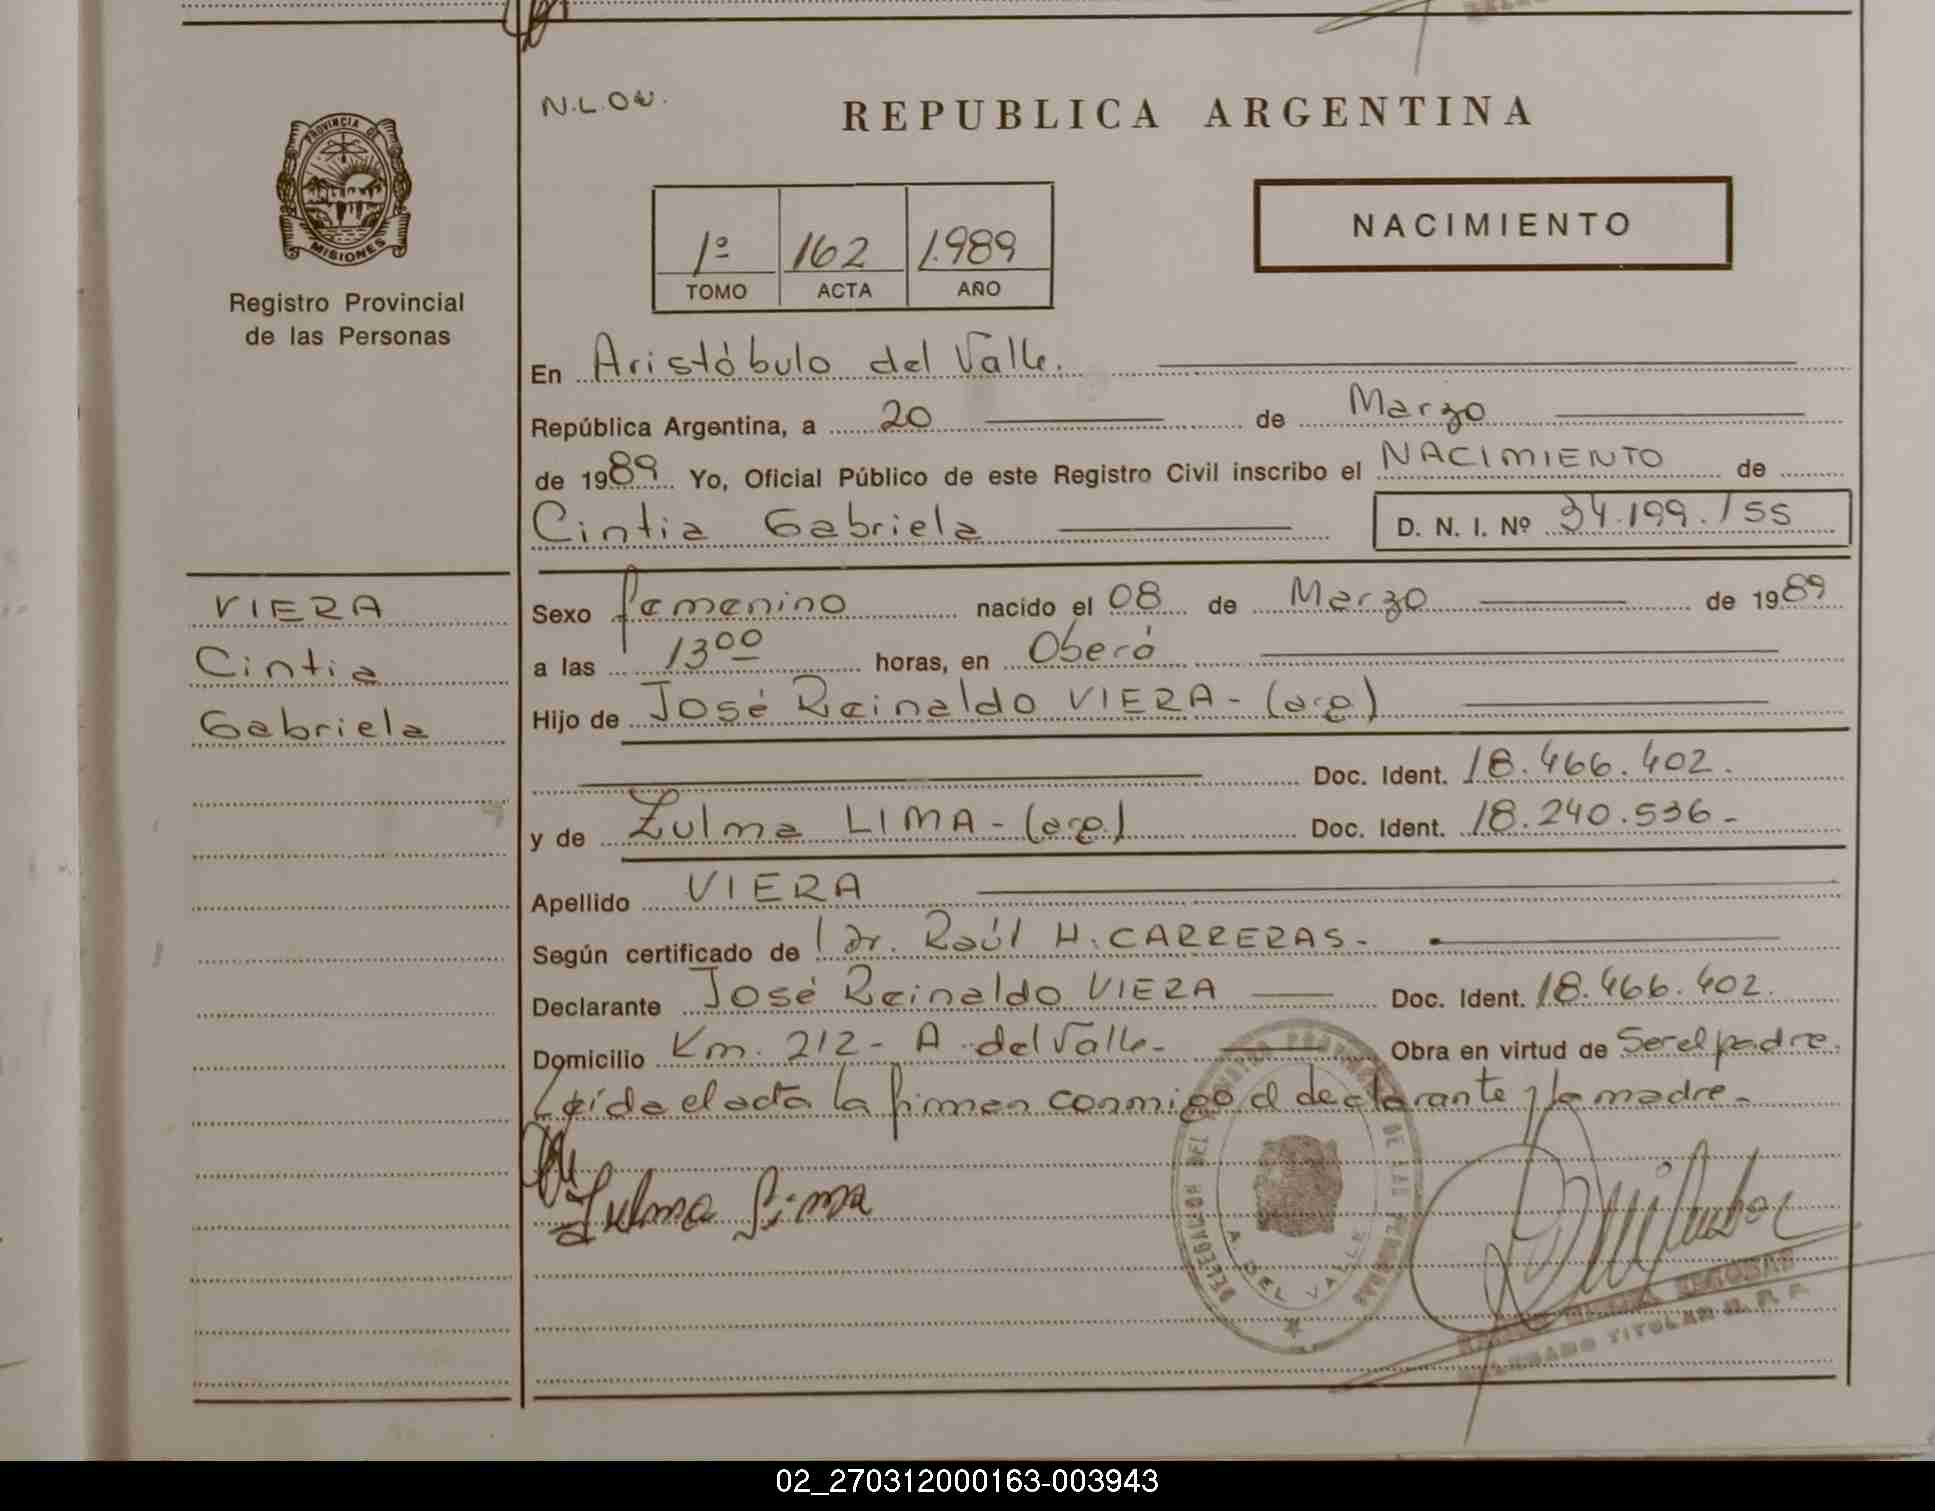 N.L.O
REPUBLICA ARGENTINA
PROVINCIA DE
MISIONES
Registro Provincial
de las Personas
1º 162 1.989
TOMO ACTA AÑO
NACIMIENTO
En Aristóbulo del Valle.
República Argentina, a 20 de Marzo
de 1989 Yo, Oficial Público de este Registro Civil inscribo el NACIMIENTO de
Cintia Gabriela D. N. I. Nº 34.199.155
VIERA
Cintia
Gabriela
Sexo femenino nacido el 08 de Marzo de 1989
a las 13 00 horas, en Oberá
Hijo de José Reinaldo VIERA - (arg)
Doc. Ident. 18.466.402.
y de Zulma LIMA - (arg.) Doc. Ident. 18.240.536-
Apellido VIERA
Según certificado de Dr. Raúl H. CARRERAS-
Declarante José Reinaldo VIERA Doc. Ident. 18.466.402.
Domicilio Km. 212 - A. del Valle- Obra en virtud de Ser el padre.
Leída el acta la firman conmigo el declarante y la madre-
Zulma Lima
DELEGACION DEL REGISTRO PROVINCIAL DE LAS PERSONAS
A. DEL VALLE
DELEGADO TITULAR R. P. P.
02_270312000163-003943